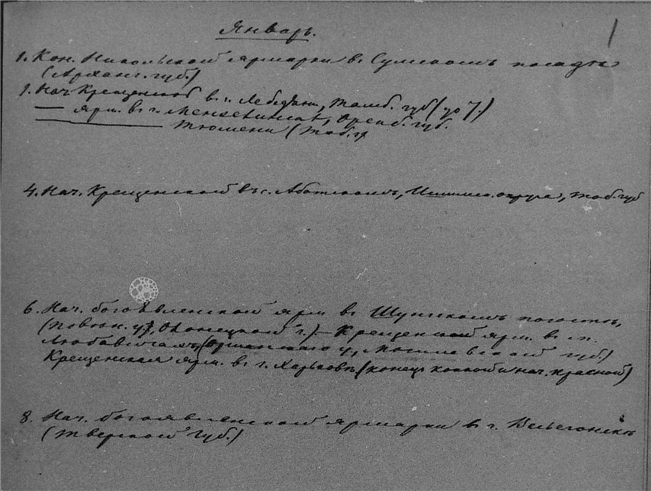 Январь.
1
1. Кон. Никольской ярмарки въ Сумскомъ посадѣ
(Арханг. губ.)
1. Нач. Крещенской въ г. Лебедяни, Тамб. губ. (до 7.)
— Ярм. въ г. Мензелинскѣ, Оренб. губ.
Тюмени (Тоб. г.
4. Нач. Крещенской въ с. Абатскомъ, Ишимск. округа, Тоб. губ
6. Нач. богоявленской ярм въ Шунгскомъ погостѣ,
(Повѣн. у.), Олонецкой г.) — Крещенской ярм. въ м.
Любавичахъ, (Оршанскаго у., Могилевской губ.)
Крещенская ярм. въ г. Харьковѣ (конецъ конной и нач. красной)
8. Нач. богоявленской ярмарки въ г. Весьегонскѣ
(Тверской губ.)